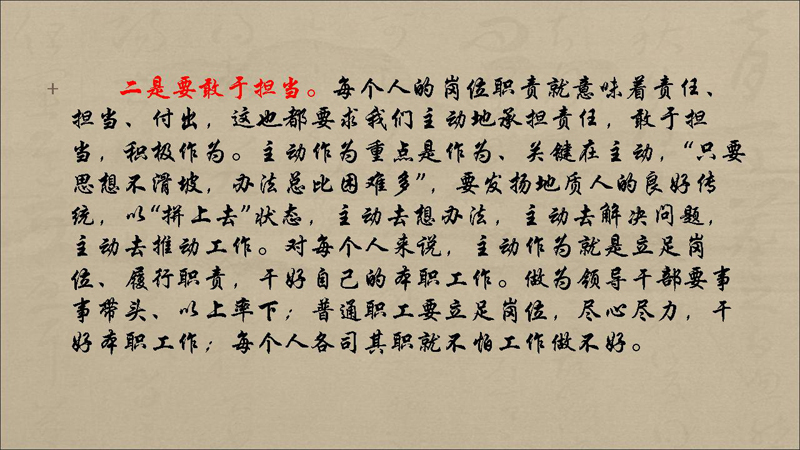 二是要敢于担当。每个人的岗位职责就意味着责任、
担当、付出，这也都要求我们主动地承担责任，敢于担
当，积极作为。主动作为重点是作为、关键在主动，“只要
思想不滑坡，办法总比困难多”，要发扬地质人的良好传
统，以“拼上去”状态，主动去想办法，主动去解决问题，
主动去推动工作。对每个人来说，主动作为就是立足岗
位、履行职责，干好自己的本职工作。做为领导干部要事
事带头、以上率下；普通职工要立足岗位，尽心尽力，干
好本职工作；每个人各司其职就不怕工作做不好。